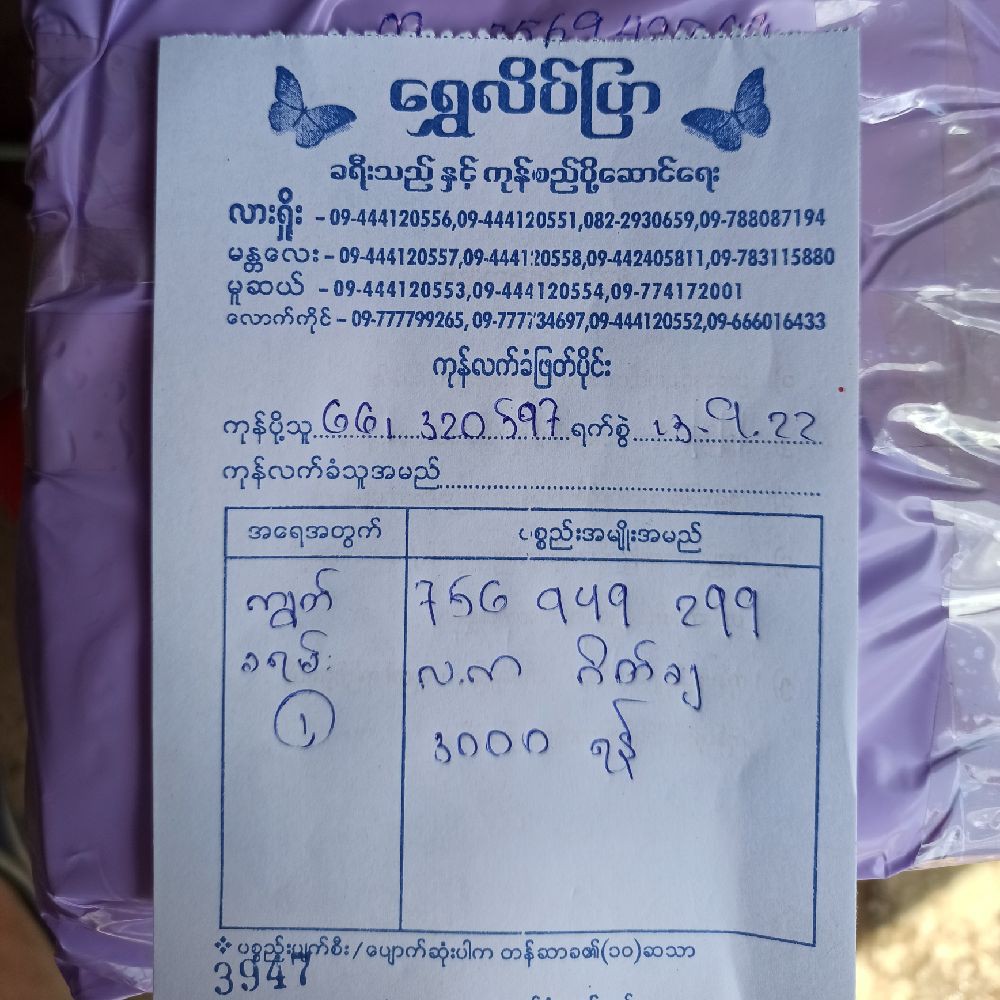 ရွှေလိပ်ပြာ
ခရီးသည် နှင့် ကုန်စည်ပို့ဆောင်ရေး
လားရှိုး - 09-444120556,09-444120551,082-2930659,09-788087194
မန္တလေး - 09-444120557,09-444120558,09-442405811,09-783115880
မူဆယ် - 09-444120553,09-444120554,09-774172001
လောက်ကိုင် - 09-777799265, 09-777734697,09-444120552,09-666016433
ကုန်လက်ခံဖြတ်ပိုင်း
ကုန်ပို့သူ 661 320597 ရက်စွဲ ၁၃.၅.22
ကုန်လက်ခံသူအမည်
အရေအတွက် ပစ္စည်းအမျိုးအမည်
ကျွတ် 756 949 299
ခရမ်း လ.က ဂိတ်ချ
၁ ၃၀၀၀ ရန်
❖ ပစ္စည်းပျက်စီး/ပျောက်ဆုံးပါက တန်ဆာခ၏(၁၀)ဆသာ
3947